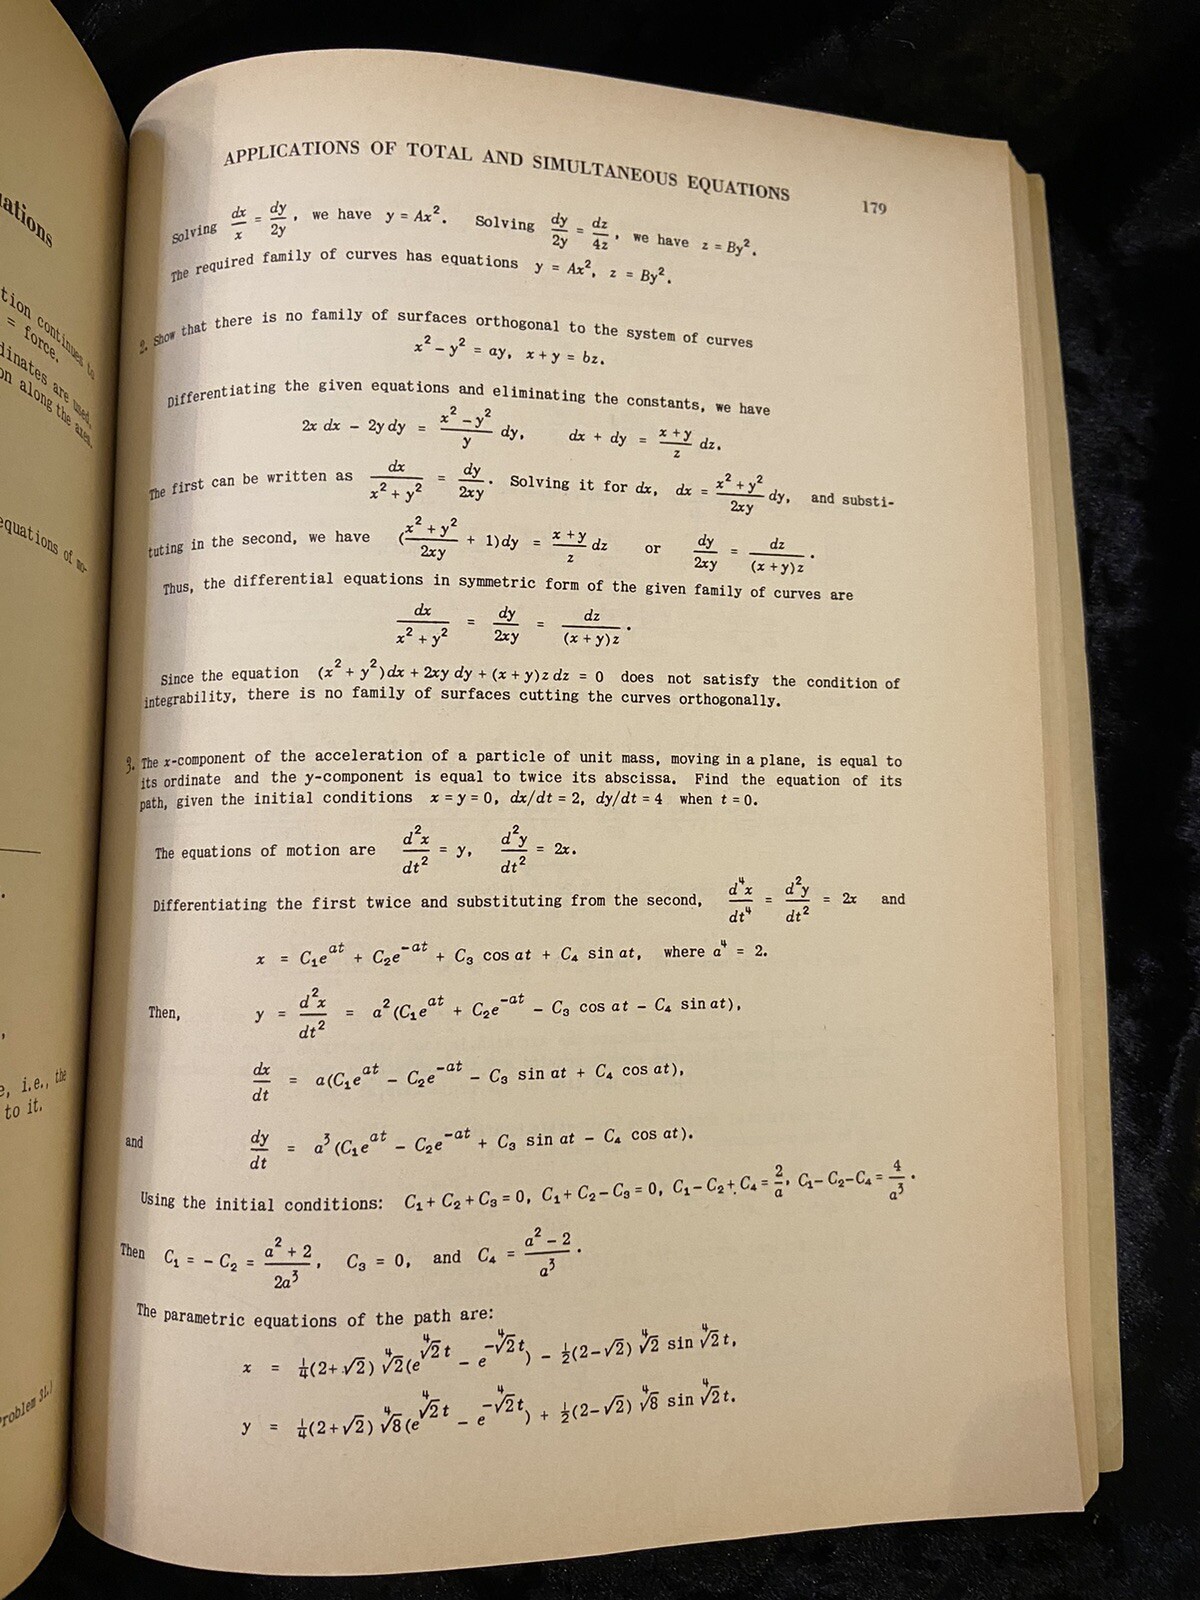 ations
tion continues to
= force.
dinates are used,
on along the axes.
equations of mo-
e, i.e., the
to it.
roblem 31.)
APPLICATIONS OF TOTAL AND SIMULTANEOUS EQUATIONS 179
Solving dx/x = dy/2y, we have y = Ax². Solving dy/2y = dz/4z, we have z = By².
The required family of curves has equations y = Ax², z = By².
2. Show that there is no family of surfaces orthogonal to the system of curves
x² – y² = ay, x + y = bz.
Differentiating the given equations and eliminating the constants, we have
2x dx – 2y dy = (x² – y²)/y dy, dx + dy = (x + y)/z dz.
The first can be written as dx/(x² + y²) = dy/2xy. Solving it for dx, dx = (x² + y²)/2xy dy, and substi-
tuting in the second, we have ((x² + y²)/2xy + 1)dy = (x + y)/z dz or dy/2xy = dz/((x + y)z).
Thus, the differential equations in symmetric form of the given family of curves are
dx/(x² + y²) = dy/2xy = dz/((x + y)z).
Since the equation (x² + y²)dx + 2xy dy + (x + y)z dz = 0 does not satisfy the condition of
integrability, there is no family of surfaces cutting the curves orthogonally.
3. The x-component of the acceleration of a particle of unit mass, moving in a plane, is equal to
its ordinate and the y-component is equal to twice its abscissa. Find the equation of its
path, given the initial conditions x = y = 0, dx/dt = 2, dy/dt = 4 when t = 0.
The equations of motion are d²x/dt² = y, d²y/dt² = 2x.
Differentiating the first twice and substituting from the second, d⁴x/dt⁴ = d²y/dt² = 2x and
x = C₁e^at + C₂e^-at + C₃ cos at + C₄ sin at, where a⁴ = 2.
Then, y = d²x/dt² = a²(C₁e^at + C₂e^-at – C₃ cos at – C₄ sin at),
dx/dt = a(C₁e^at – C₂e^-at – C₃ sin at + C₄ cos at),
and dy/dt = a³(C₁e^at – C₂e^-at + C₃ sin at – C₄ cos at).
Using the initial conditions: C₁ + C₂ + C₃ = 0, C₁ + C₂ – C₃ = 0, C₁ – C₂ + C₄ = 2/a, C₁ – C₂ – C₄ = 4/a³.
Then C₁ = – C₂ = (a² + 2)/2a³, C₃ = 0, and C₄ = (a² – 2)/a³.
The parametric equations of the path are:
x = ¼(2+√2) ∜2(e^∜2t – e^-∜2t) – ½(2–√2) ∜2 sin ∜2t,
y = ¼(2+√2) ∜8(e^∜2t – e^-∜2t) + ½(2–√2) ∜8 sin ∜2t.